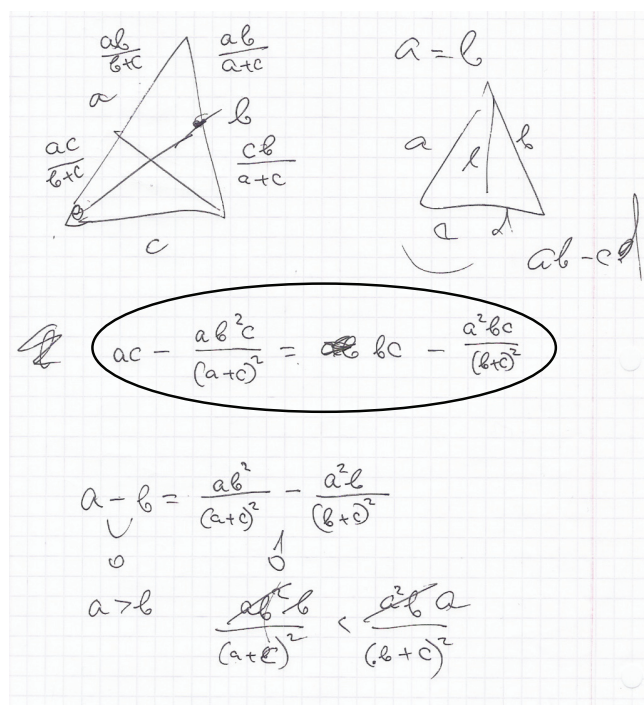 ab/(b+c) ab/(a+c)
a = b
a b
ac/(b+c) cb/(a+c)
c
a l b
ab - cd
ac - ab²c/(a+c)² = bc - a²bc/(b+c)²
a - b = ab²/(a+c)² - a²b/(b+c)²
a > b b/(a+c)² < a/(b+c)²